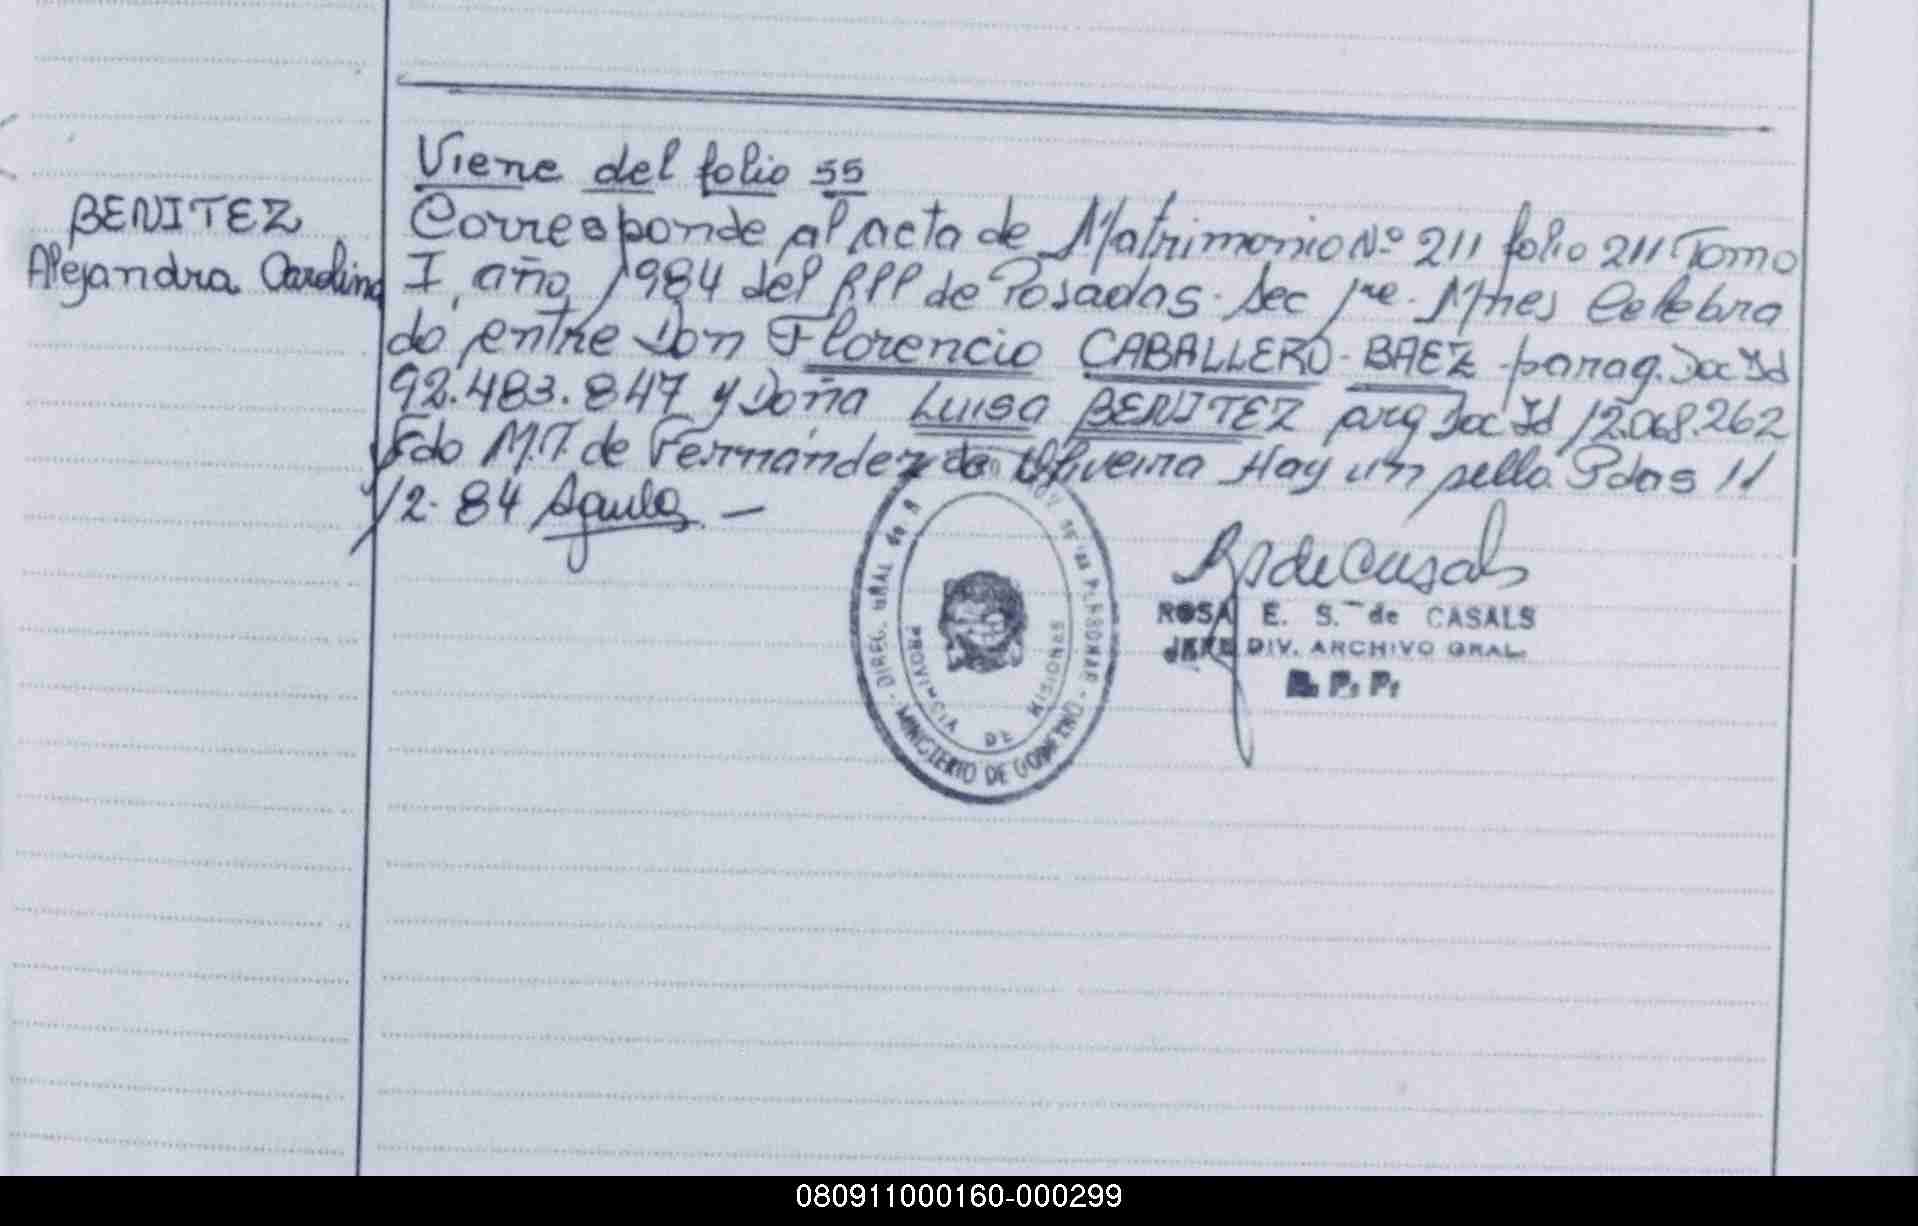 Viene del folio 55
BENITEZ
Alejandra Carolina
Corresponde al acta de Matrimonio Nº 211 folio 211 Tomo
I, año 1984 del RPP de Posadas. Sec 1re. Mnes Celebra
do entre Don Florencio CABALLERO-BAEZ parag. Doc Id
92.483.847 y Doña Luisa BENITEZ arg Doc Id 12.068.262
Fdo M.T. de Fernández de Oliveira Hay un sello Pdas 11
12-84 Aguila. —
DIREC. GRAL de R de las PERSONAS
PROVINCIA DE MISIONES
MINISTERIO DE GOBIERNO
RSdeCasals
ROSA E. S. de CASALS
JEFE DIV. ARCHIVO GRAL.
R. P. P.
080911000160-000299